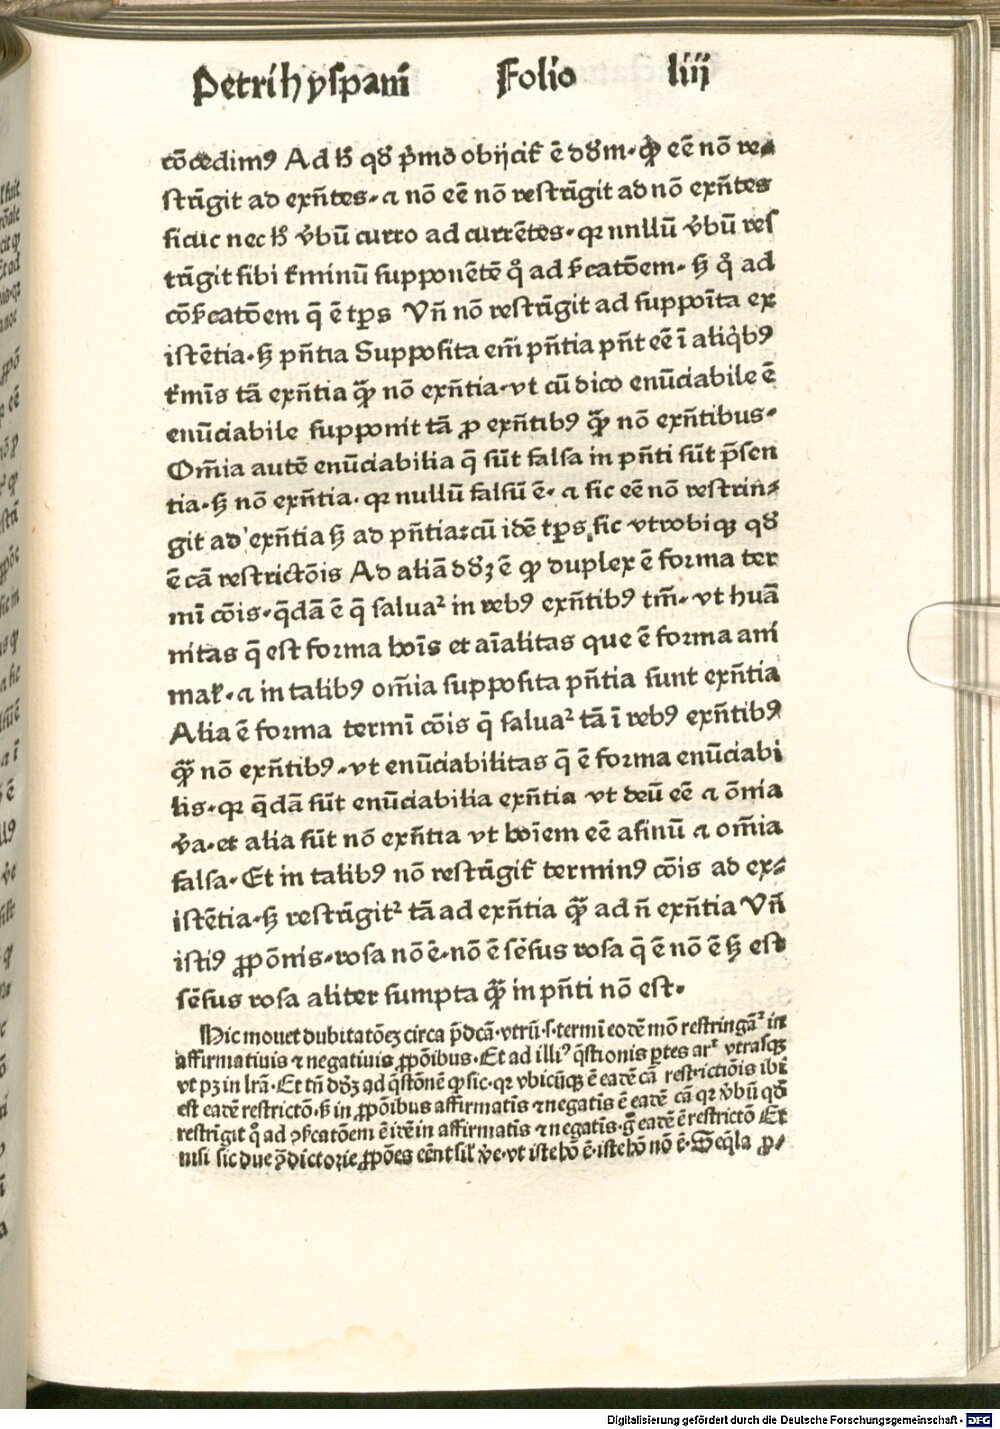 Petri hyspani Folio liij
cōcedimꝰ Ad hͦ qđ pͥmo obijcit̄ ē dđm. ꝙ eē nō re⸗
strīgit ad exñtes. ⁊ nō eē nō restrīgit ad nō exñtes
sicut nec hͦ v̄bū curro ad currētes. qꝛ nullū v̄bū res
trīgit sibi t̄minū supponētē qͦ ad s̄catōem. sꝫ qͦ ad
cōs̄catōem q̄ ē tp̄s Vñ nō restrīgit ad supposita ex
istētia. sꝫ pñtia Supposita em̄ pñtia pñt eē ī aliqͥbꝰ
t̄mīs tā exñtia q̄ꝫ nō exñtia. vt cū dico enūciabile ē
enūciabile supponit tā ꝓ exñtibꝰ q̄ꝫ nō exñtibus.
Om̄ia autē enūciabilia q̄ sūt falsa in pñti sūt p̄sen
tia. sꝫ nō exñtia. qꝛ nullū falsū ē. ⁊ sic eē nō restrin⸗
git ad exñtia sꝫ ad pñtia: cū idē tp̄s sic vtrobiqꝫ qđ
ē cā restrictōis Ad aliā dđꝫ ē ꝙ duplex ē forma ter
mī cōis. q̄dā ē q̄ saluaᷣ in rebꝰ exñtibꝰ tm̄. vt huā
nitas q̄ est forma hoīs et aīalitas que ē forma ani
mał. ⁊ in talibꝰ om̄ia supposita pñtia sunt exñtia
Alia ē forma termī cōis q̄ saluaᷣ tā ī rebꝰ exñtibꝰ
q̄ꝫ nō exñtibꝰ. vt enūciabilitas q̄ ē forma enūciabi
lis. qꝛ q̄dā sūt enūciabilia exñtia vt deū eē ⁊ om̄ia
v̄a. et alia sūt nō exñtia vt hoīem eē asinū ⁊ om̄ia
falsa. Et in talibꝰ nō restrīgit̄ terminꝰ cōis ad ex⸗
istētia. sꝫ restrīgitᷣ tā ad exñtia q̄ꝫ ad ñ exñtia Vñ
istiꝰ ꝓpōnis. rosa nō ē. nō ē sēsus rosa q̄ ē nō ē sꝫ est
sēsus rosa aliter sumpta q̄ꝫ in pñti nō est.
Hic mouet dubitatōeꝫ circa p̄dcā. vtrū. s. termī eodē mō restringāᷣ in
affirmatiuis ⁊ negatiuis ꝓpōibus. Et ad illiꝰ q̄stionis ptes arᷣ vtrasqꝫ
vt pꝫ in lr̄a. Et tñ dđꝫ ad q̄stōnē ꝙ sic. qꝛ vbicūqꝫ ē eadē cā restrictiōis ibi
est eadē restrictō. sꝫ in ꝓpōibus affirmatīs ⁊ negatīs ē eadē cā qꝛ v̄bū qđ
restrīgit qͦ ad ꝯs̄catōem ē idē in affirmatīs ⁊ negatīs. g̊ eadē ē restrictō Et
nisi sic due ꝯ̄dictorie ꝓpōes eēnt sił v̄e. vt iste hō ē. iste hō nō ē. Seq̄la ꝓ⸗
Digitalisierung gefördert durch die Deutsche Forschungsgemeinschaft - DFG